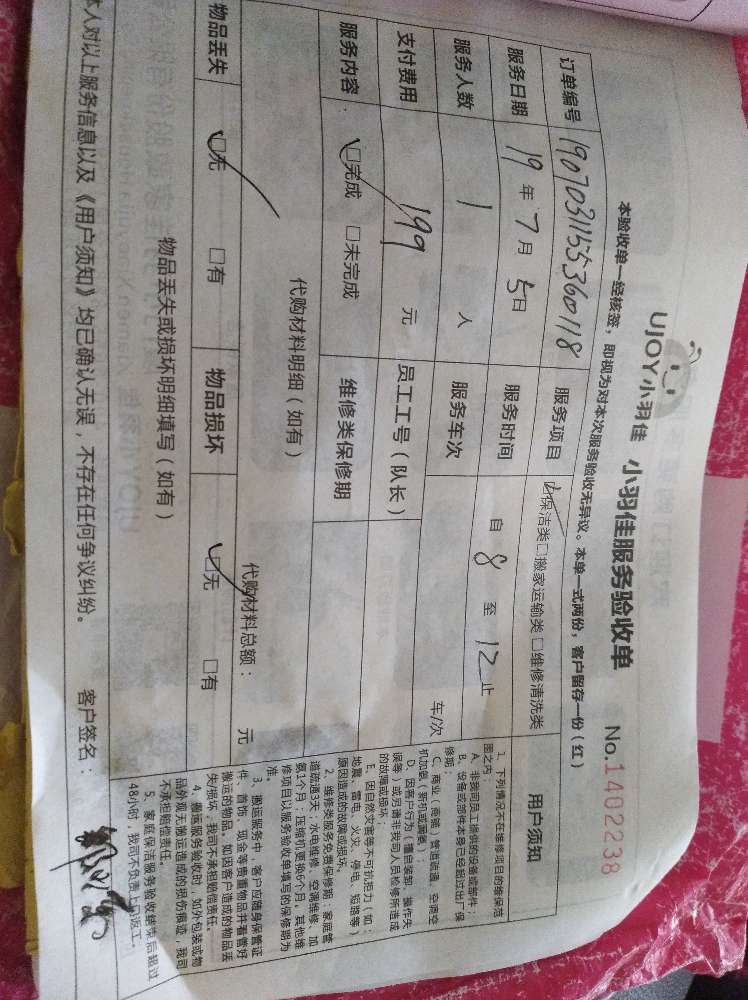 UJOY小羽佳 小羽佳服务验收单 No.1402238
本验收单一经核签，即视为对本次服务验收无异议。本单一式两份，客户留存一份（红）
订单编号 1907031155360118 服务项目 ☑保洁类□搬家运输类□维修清洗类
服务日期 19年7月5日 服务时间 自8至12止
服务人数 1人 服务车次 车/次
支付费用 199元 员工工号（队长）
服务内容： ☑完成 □未完成 维修类保修期
代购材料明细（如有） 代购材料总额： 元
物品丢失 ☑无 □有 物品损坏 ☑无 □有
物品丢失或损坏明细填写（如有）
用户须知
1、下列情况不在维修项目的维保范
围之内：
A、非我司员工提供的设备或部件；
B、设备或部件本身已经超过出厂保
修期；
C、商业（商铺）管道疏通、空调空
机加氨（新机或漏氨）；
D、因客户行为（擅自装卸、操作失
误等）或另请非我司人员检修所造成
的故障或损坏；
E、因自然灾害等不可抗拒力（如：
地震、雷电、火灾、停电、短路等）
原因造成的故障或损坏。
2、维修类服务免费保修期：家庭管
道疏通3天；水电维修、空调维修、加
氨1个月；压缩机更换6个月，其他维
修项目以服务验收单填写的保修期为
准。
3、搬运服务中，客户应随身保管证
件、首饰、现金等贵重物品并看管好
搬运的物品，如因客户造成的物品丢
失/损坏，我司不承担赔偿责任。
4、搬运服务验收时，如外包装或物
品外观无搬运造成的损伤痕迹，我司
不承担赔偿责任。
5、家庭保洁服务验收结束后超过
48小时，我司不负责上门返工。
本人对以上服务信息以及《用户须知》均已确认无误，不存在任何争议纠纷。 客户签名：